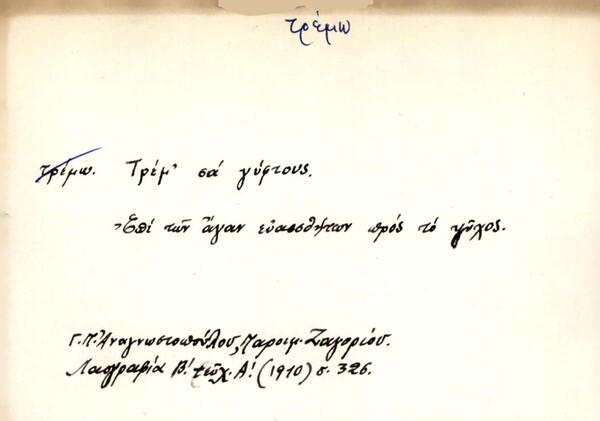 τρέμω
τρέμω. Τρέμ' σά γύφτους.
Ἐπί τῶν ἄγαν εὐαισθήτων πρός τό ψῦχος.
Γ.Π. Ἀναγνωστοπούλου, Παροιμ. Ζαγορίου.
Λαογραφία Β! τεῦχ. Α! (1910) σ. 326.